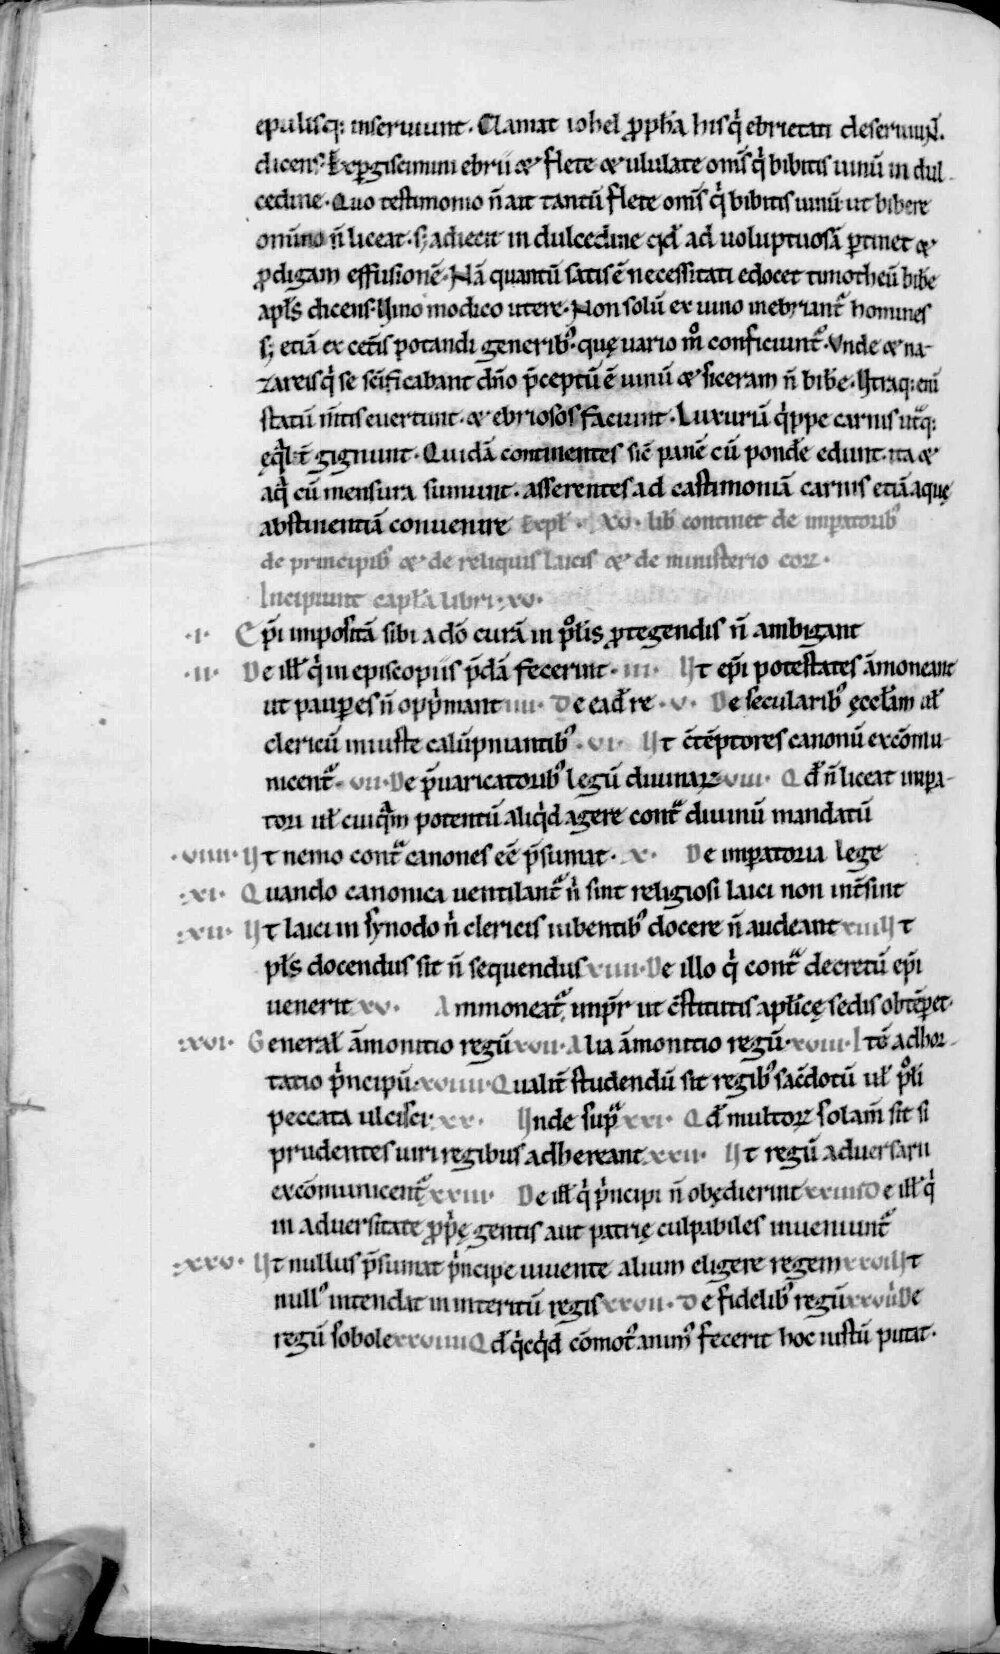 epulisq; inseruiunt. Clamat iohel ꝓpħa his q̇ ebrietati deseruiun̄t.
dicens. Exꝑgiscimini ebrii & flete & ululate om̄s q̇ bibitis uinū in dul-
cedine. Quo testimonio n̄ ait tantū flete om̄s q̇ bibitis uinū. ut bibere
omīno n̄ liceat. s; adiecit in dulcedine qđ ad uoluptuosā ꝑtinet &
ꝓdigam effusionē. Nā quantū satis ē necessitati edocet timotheū bibe
apľs dicens. Uino modico utere. Non solū ex uino inebriant᷑ homines
s; etiā ex cet̄is potandi generib᷒. quę uario m̊ conficiunt᷑. Vnde & na-
zareis q̇ se scīficabant dn̄o p̄ceptū ē uinū & siceram n̄ bibe. Utraq; eni
statū m̄tis euertunt. & ebriosos faciunt. Luxuriā q̇ppe carnis utᵃq;
ęq̇lit̄ gignunt. Quidā continentes sic̄ panē cū pondeˉ edunt. ita &
aq̇ cū mensura sumunt. asserentes ad castimoniā carnis etiā aquę
abstinentiā conuenire Expľ. XV. lib̄ continet de imꝑatorib᷒
de principib᷒ & de reliquis laicis & de ministerio eoꝝ.
Incipiunt capľa libri. xv.
.I. Ep̄i impositā sibi a dō curā in pop̊lis ꝓtegendis n̄ ambigant
.II. De ilľ q̇ in episcopiis p̄dā fecerint. III. Ut ep̄i potestates āmoneant
ut pauꝑes n̄ opp̄mant IIII. De eađ re. V. De secularib᷒ ęccľam uľ
clericū iniuste calūpniantib᷒. VI. Ut c̄tēptores canonū excōmu-
nicent᷑. VII. De p̄uaricatorib᷒ legū diuinaꝝ VIII. Qđ n̄ liceat imꝑa-
tori uľ cuiq̄m potentū aliq̇d agere contᵃ diuinū mandatū
.VIIII. Ut nemo contᵃ canones eē p̄sumat. X. De imꝑatoria lege
.XI. Quando canonica uentilant᷑ n̄ sint religiosi laici non int̄sint
.XII. Ut laici in synodo n̄ clericis iubentib᷒ docere n̄ audeant XIII Ut
pľs docendus sit n̄ sequendus XIIII. De illo q̇ contᵃ decretū ep̄i
uenerit XV. Ammoneat᷑ imꝑr ut c̄stitutis apľicę sedis obtēꝑet.
.XVI. Generał āmonitio regū XVII. Alia āmonitio regū. XVIII. Itē adhor-
tatio ṗncipū. XVIIII. Qualit̄ studendū sit regib᷒ sac̄dotū uľ pop̊li
peccata ulcisci. XX. Unde supᵃ XXI. Qđ multoꝝ solam̄ sit si
prudentes uiri regibus adhereant XXII. Ut regū aduersarii
excōmunicent᷑ XXIII. De ilľ q̇ ṗncipi n̄ obędierint XXIIII De ilľ q̇
in aduersitate ꝓṗę gentis aut patrię culpabiles inueniunt᷑
.XXV. Ut nullus p̄sumat ṗncipe uiuente alium eligere regem XXVI Ut
null᷒ intendat in interitū regis XXVII. De fidelib᷒ regū XXVIII De
regū sobole XXVIIII Qđ q̇cq̇d cōmot᷒ anim᷒ fecerit hoc iustū putat.